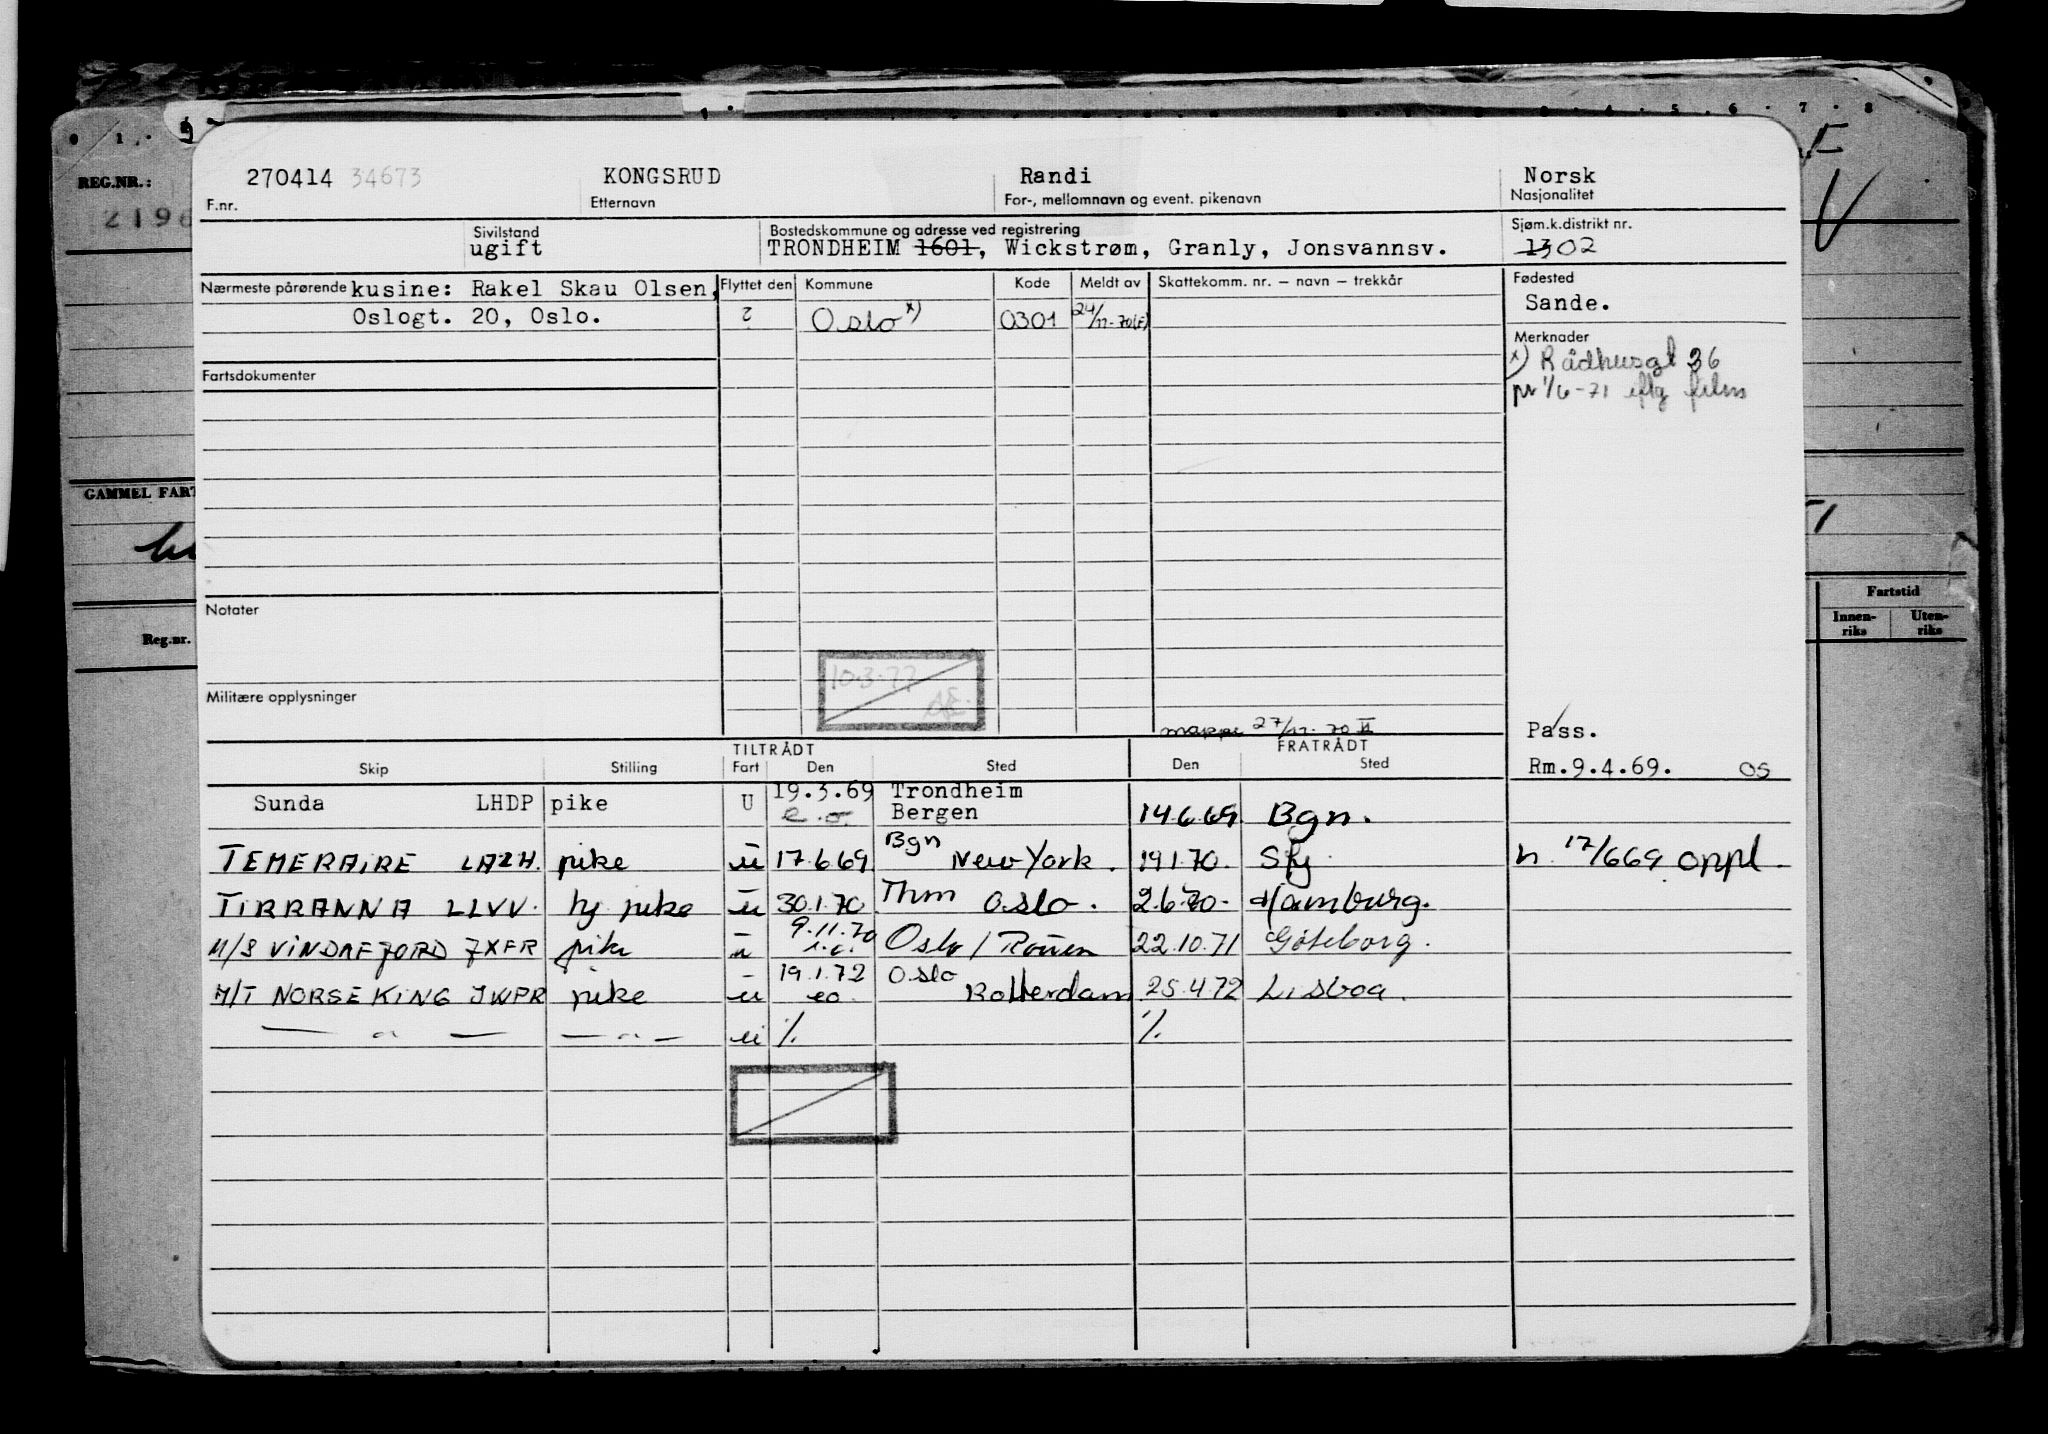 0 1 . 4 . 5 . 6 . 7 . 8
REG.NR.:
2196
GAMMEL FART
Reg.nr.
Fartstid
Innen-riks Uten-riks
270414 34673 KONGSRUD Randi Norsk
F.nr. Etternavn For-, mellomnavn og event. pikenavn Nasjonalitet
Sivilstand Bostedskommune og adresse ved registrering Sjøm.k.distrikt nr.
ugift TRONDHEIM 1601, Wickstrøm, Granly, Jonsvannsv. 1302
Nærmeste pårørende kusine: Rakel Skau Olsen, Flyttet den Kommune Kode Meldt av Skattekomm. nr. – navn – trekkår Fødested
Oslogt. 20, Oslo. ? Oslo x) 0301 24/11-70(F) Sande.
Merknader
x) Rådhusgt 36
pr 1/6-71 eftg film
Fartsdokumenter
Notater
10.3.77
Militære opplysninger
mappe 27/11-70 Pass.
TILTRÅDT FRATRÅDT
Skip Stilling Fart Den Sted Den Sted Rm.9.4.69. OS
Sunda LHDP pike U 19.3.69 Trondheim
e.o. Bergen 14.6.69 Bgn.
TEMERAIRE LAZH. pike u 17.6.69 Bgn New York. 19.1.70 Sfj n. 17/669 oppl.
TIRRANNA LLVV. hj. pike u 30.1.70 Thm Oslo. 2.6.70. Hamburg.
M/S VINDAFJORD JXFR pike u 9.11.70 i.o. Oslo / Rouen 22.10.71 Göteborg.
M/T NORSE KING JWPR pike u 19.1.72 eo. Oslo Rotterdam 25.4.72 Lisboa.
— " — — " — u % %